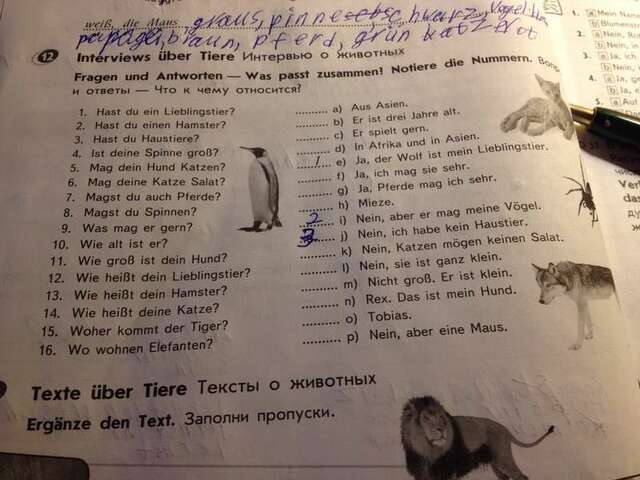 weiß, die Maus graus, hwarz, Vogel
papagei, braun, pferd, grün katz Rot
12 Interviews über Tiere Интервью о животных
Fragen und Antworten — Was passt zusammen? Notiere die Nummern.
и ответы — Что к чему относится?
1. Hast du ein Lieblingstier?
2. Hast du einen Hamster?
3. Hast du Haustiere?
4. Ist deine Spinne groß?
5. Mag dein Hund Katzen?
6. Mag deine Katze Salat?
7. Magst du auch Pferde?
8. Magst du Spinnen?
9. Was mag er gern?
10. Wie alt ist er?
11. Wie groß ist dein Hund?
12. Wie heißt dein Lieblingstier?
13. Wie heißt dein Hamster?
14. Wie heißt deine Katze?
15. Woher kommt der Tiger?
16. Wo wohnen Elefanten?
......... a) Aus Asien.
......... b) Er ist drei Jahre alt.
......... c) Er spielt gern.
......... d) In Afrika und in Asien.
1 e) Ja, der Wolf ist mein Lieblingstier.
......... f) Ja, ich mag sie sehr.
......... g) Ja, Pferde mag ich sehr.
......... h) Mieze.
2 i) Nein, aber er mag meine Vögel.
3 j) Nein, ich habe kein Haustier.
......... k) Nein, Katzen mögen keinen Salat.
......... l) Nein, sie ist ganz klein.
......... m) Nicht groß. Er ist klein.
......... n) Rex. Das ist mein Hund.
......... o) Tobias.
......... p) Nein, aber eine Maus.
Texte über Tiere Тексты о животных
Ergänze den Text. Заполни пропуски.
1. a Mein
b Blumen
2. a Nein,
b Nein,
3. a Ja,
b Nein,
4. a Ja,
b Nein,
5. a Auf